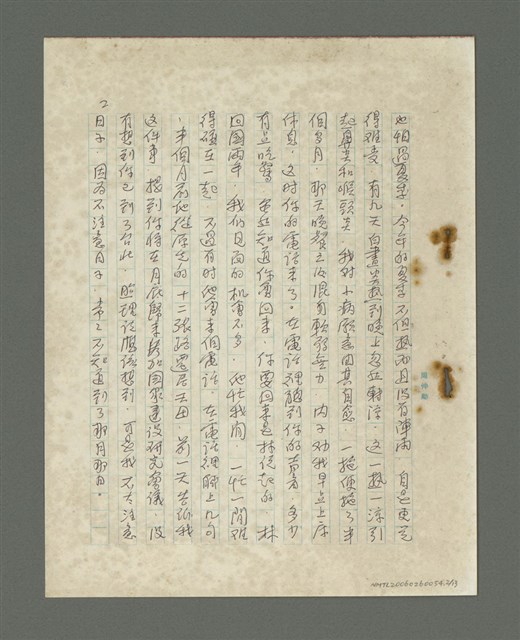 也怕過夏季。今年的夏季不但熱而且沒有陣雨 自是更覺
得難受 有幾天白晝炎熱到晚上忽然轉涼。這一熱一涼引
起鼻炎和喉頭炎。我對小病願意由其自愈。一拖便拖了半
個多月。那天晚餐之後混身軟弱無力 內子勸我早點上床
休息。這時你的電話來了。在電話裡聽到你的聲音 多少
有点吃驚 雖然知道你要回來。你要回來是林從 的。林
回國兩年。我們見面的机會不多。他忙我閑 一忙一閒難
得碰在一起。不過有時他會來個電話。在電話裡聊上几句
。半個月前他從原先的十二張路遷居天母。前一天告訴我
這件事 提到你將在月底歸來參加國家建設研究會議。沒
有想到你已到了台北。照理說應該想到。可是我不大注意
日子。因為不注意日子。常常不知道到了那月那日。
2
NMTL20060260054.2/13